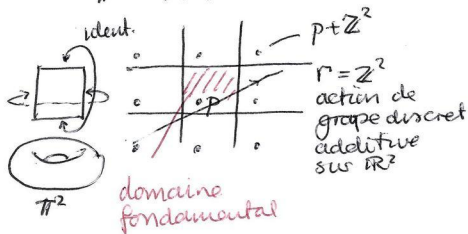 ident.
p + ℤ²
Γ = ℤ²
action de
groupe discret
additive
sur ℝ²
p
domaine
fondamental
𝕋²